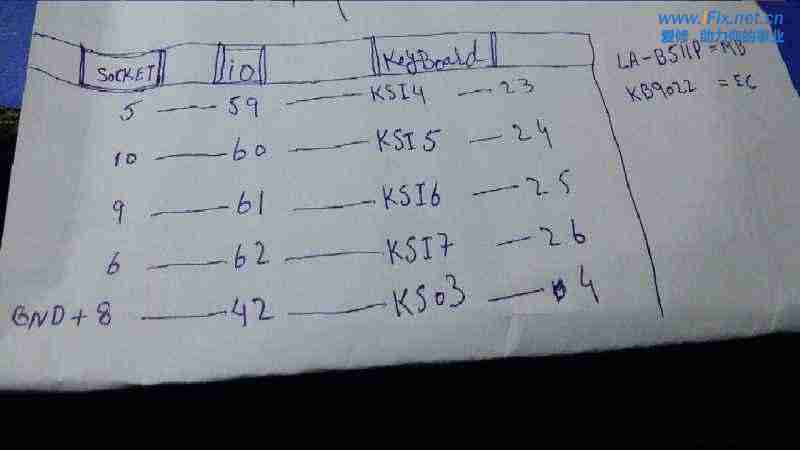 www.iFix.net.cn
爱修 助力你的事业
SOCKET iO KeyBoard
LA-B511P = MB
5 — 59 — KSI4 — 23
KB9022 = EC
10 — 60 — KSI5 — 24
9 — 61 — KSI6 — 25
6 — 62 — KSI7 — 26
GND + 8 — 42 — KSO3 — 4